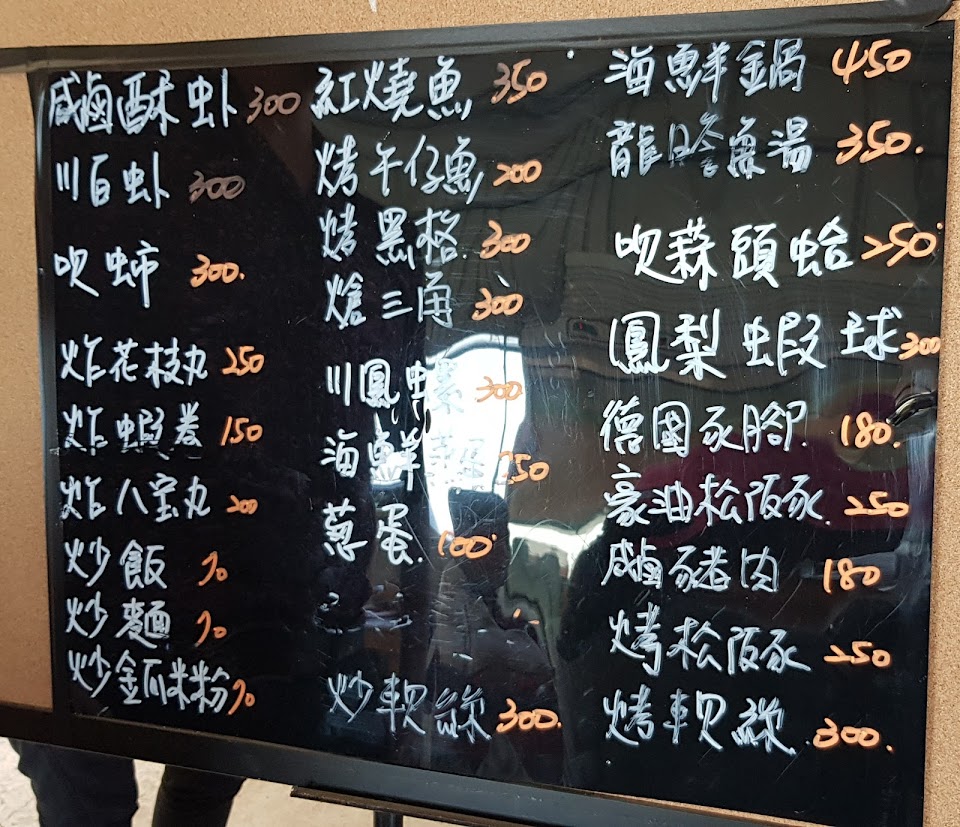 咸鹵酥虾 300
川百虾 300
吹蚵 300.
炸花枝丸 250
炸蝦卷 150
炸八宝丸 200
炒飯 70
炒麵 70
炒金瓜米粉 70
紅燒魚 350
烤午仔魚 200
烤黑格 300
熗三角 300
川鳳螺 300
海鮮 250
蔥蛋 100
炒軟絲 300.
海鮮鍋 450
龍蛤魚湯 350.
吹蒜頭蛤 250
鳳梨蝦球 300
德國豕腳 180.
豪油松阪豕 250
咸鹵豬肉 180
烤松阪豕 250
烤軟絲 300.